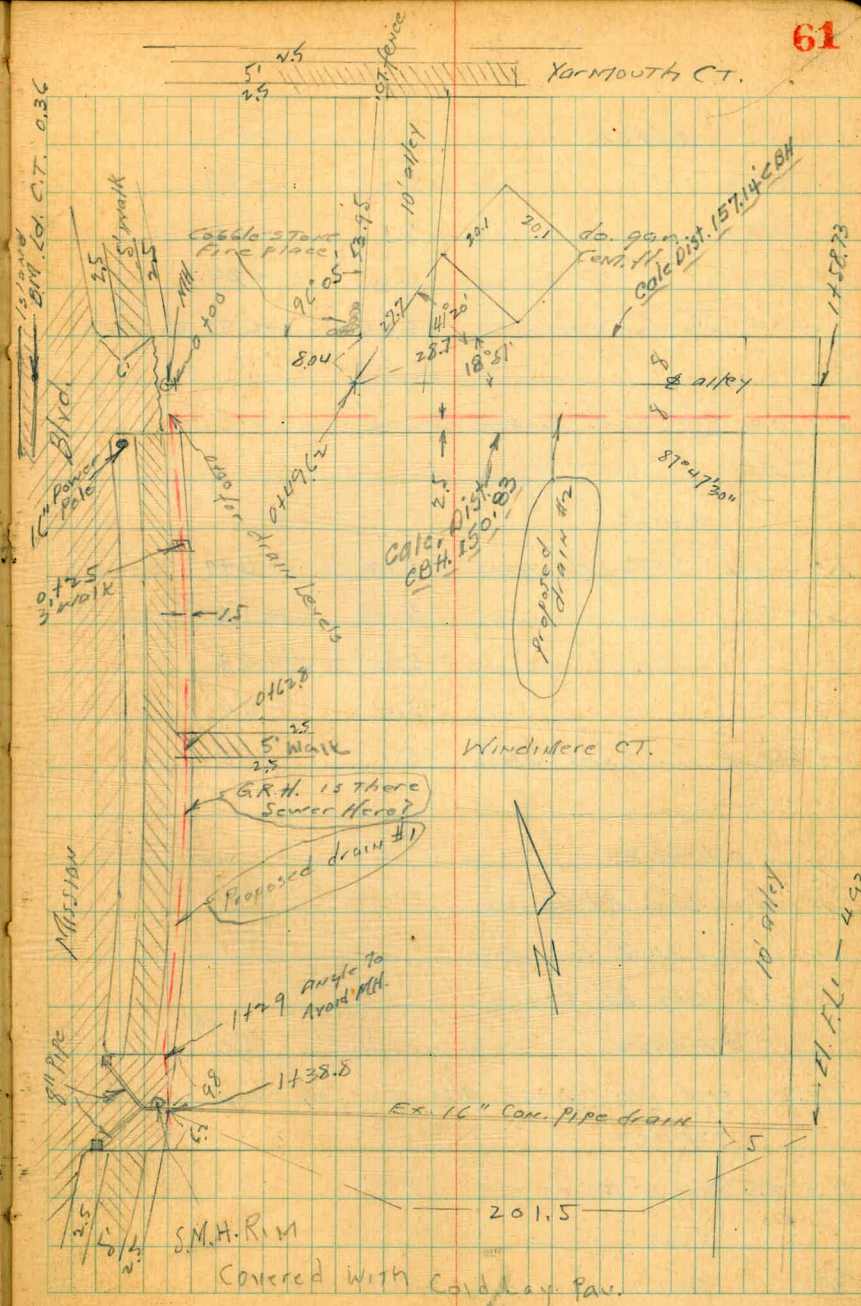 61
2.5
5'
2.5
Yarmouth CT.
fence
Island
BM. Ld. C.T. 0.36
2.5
5' Walk
2.5
MH.
0+00
Cobble Stone
Fire place
53.95
10' alley
20.1
20.1
Calc Dist. 157.14' CBH
1+58.73
27.7
41°20'
28.7
8.04
8
₵ alley
8
Blvd.
16" Power
Pole
0+00 for drain Levels
0+49.62
2.5
Calc. Dist.
CBH. 150.83
87°47'30"
Proposed
drain #2
0+25
3' Walk
1.5
0+62.8
2.5
5' Walk
2.5
Windimere CT.
G.R.H. is There
Sewer Here?
Proposed drain #1
Mission
N
10' alley
1+29 Angle to
Avoid MH.
8" Pipe
9.8
1+38.8
Ex. 16" Con. Pipe drain
5
201.5
2.5
5'
2.5
S.M.H. Rim
Covered with Cold Lay Pav.